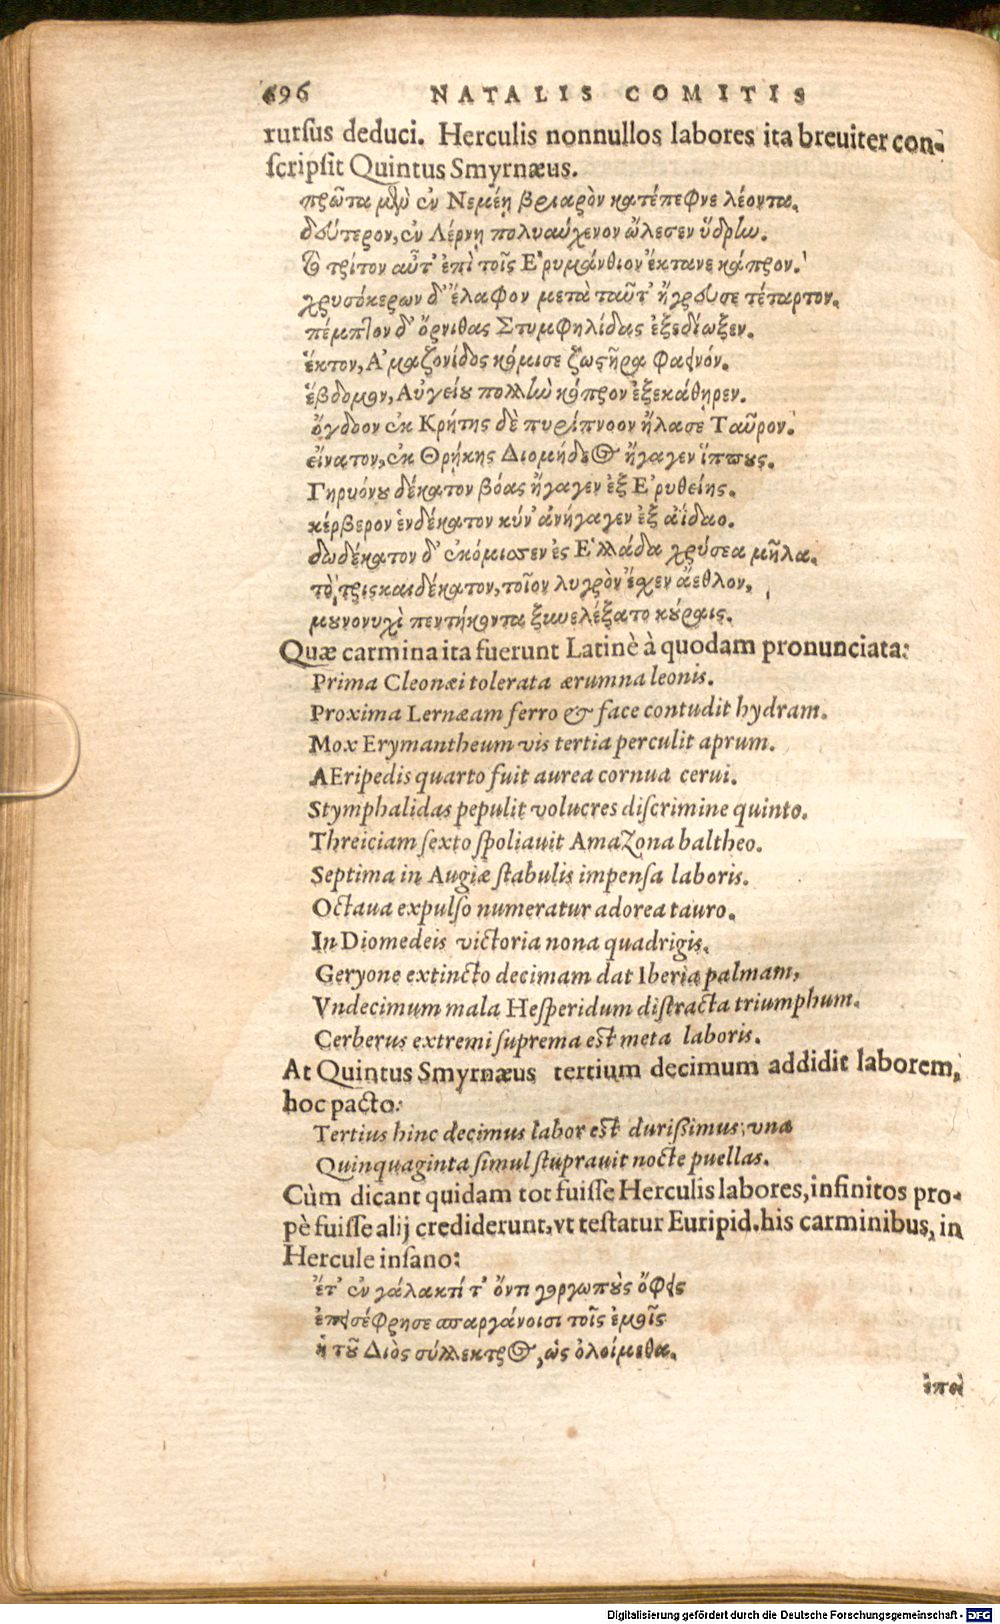 696 NATALIS COMITIS
rursus deduci. Herculis nonnullos labores ita breuiter con-
scripsit Quintus Smyrnæus.
πρῶτα μὲν ἐν Νεμέῃ βριαρὸν κατέπεφνε λέοντα.
δεύτερον, ἐν Λέρνῃ πολυαύχενον ὤλεσεν ὕδραν.
τὸ τρίτον αὖτ' ἐπὶ τοῖς Ἐρυμάνθιον ἔκτανε κάπρον.
χρυσόκερων δ' ἔλαφον μετὰ ταῦτ' ἤγρευσε τέταρτον.
πέμπτον δ' ὄρνιθας Στυμφηλίδας ἐξεδίωξεν.
ἕκτον, Ἀμαζονίδος κόμισε ζωστῆρα φαεινόν.
ἕβδομον, Αὐγείου πολλὴν κόπρον ἐξεκάθηρεν.
ὄγδοον ἐκ Κρήτης δὲ πυρίπνοον ἤλασε Ταῦρον.
εἴνατον, ἐκ Θρήκης Διομήδεος ἤγαγεν ἵππους.
Γηρυόνου δέκατον βόας ἤγαγεν ἐξ Ἐρυθείης.
κέρβερον ἑνδέκατον κύν' ἀνήγαγεν ἐξ ἀΐδαο.
δωδέκατον δ' ἐκόμισσεν ἐς Ἑλλάδα χρύσεα μῆλα.
τὸ τρισκαιδέκατον, τοῖον λυγρὸν ἔχεν ἄεθλον,
μουνονυχὶ πεντήκοντα ξυνελέξατο κούραις.
Quæ carmina ita fuerunt Latinè à quodam pronunciata:
Prima Cleonæi tolerata ærumna leonis.
Proxima Lernæam ferro & face contudit hydram.
Mox Erymantheum vis tertia perculit aprum.
AEripedis quarto fuit aurea cornua cerui.
Stymphalidas pepulit volucres discrimine quinto.
Threiciam sexto spoliauit Amazona baltheo.
Septima in Augiæ stabulis impensa laboris.
Octaua expulso numeratur adorea tauro.
In Diomedeis victoria nona quadrigis.
Geryone extincto decimam dat Iberia palmam,
Vndecimum mala Hesperidum distracta triumphum.
Cerberus extremi suprema est meta laboris.
At Quintus Smyrnæus tertium decimum addidit laborem,
hoc pacto:
Tertius hinc decimus labor est durissimus, vna
Quinquaginta simul stuprauit nocte puellas.
Cùm dicant quidam tot fuisse Herculis labores, infinitos pro-
pè fuisse alij crediderunt, vt testatur Euripid. his carminibus, in
Hercule insano:
ἔτ' ἐν γάλακτί τ' ὄντι γοργωποὺς ὄφεις
ἐπεισέφρησε σπαργάνοισι τοῖς ἐμοῖς
ἡ τοῦ Διὸς σύλλεκτρος, ὡς ὀλοίμεθα.
ἐπεὶ
Digitalisierung gefördert durch die Deutsche Forschungsgemeinschaft - DFG